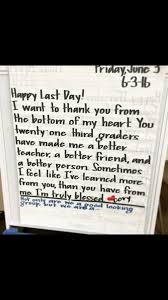 Friday, June 3
6-3-16
Happy Last Day!
I want to thank you from
the bottom of my heart. You
twenty-one third graders
have made me a better
teacher, a better friend, and
a better person. Sometimes
I feel like I've learned more
from you, than you have from
me. I'm truly blessed
Not only are we a good looking
group, but we are a